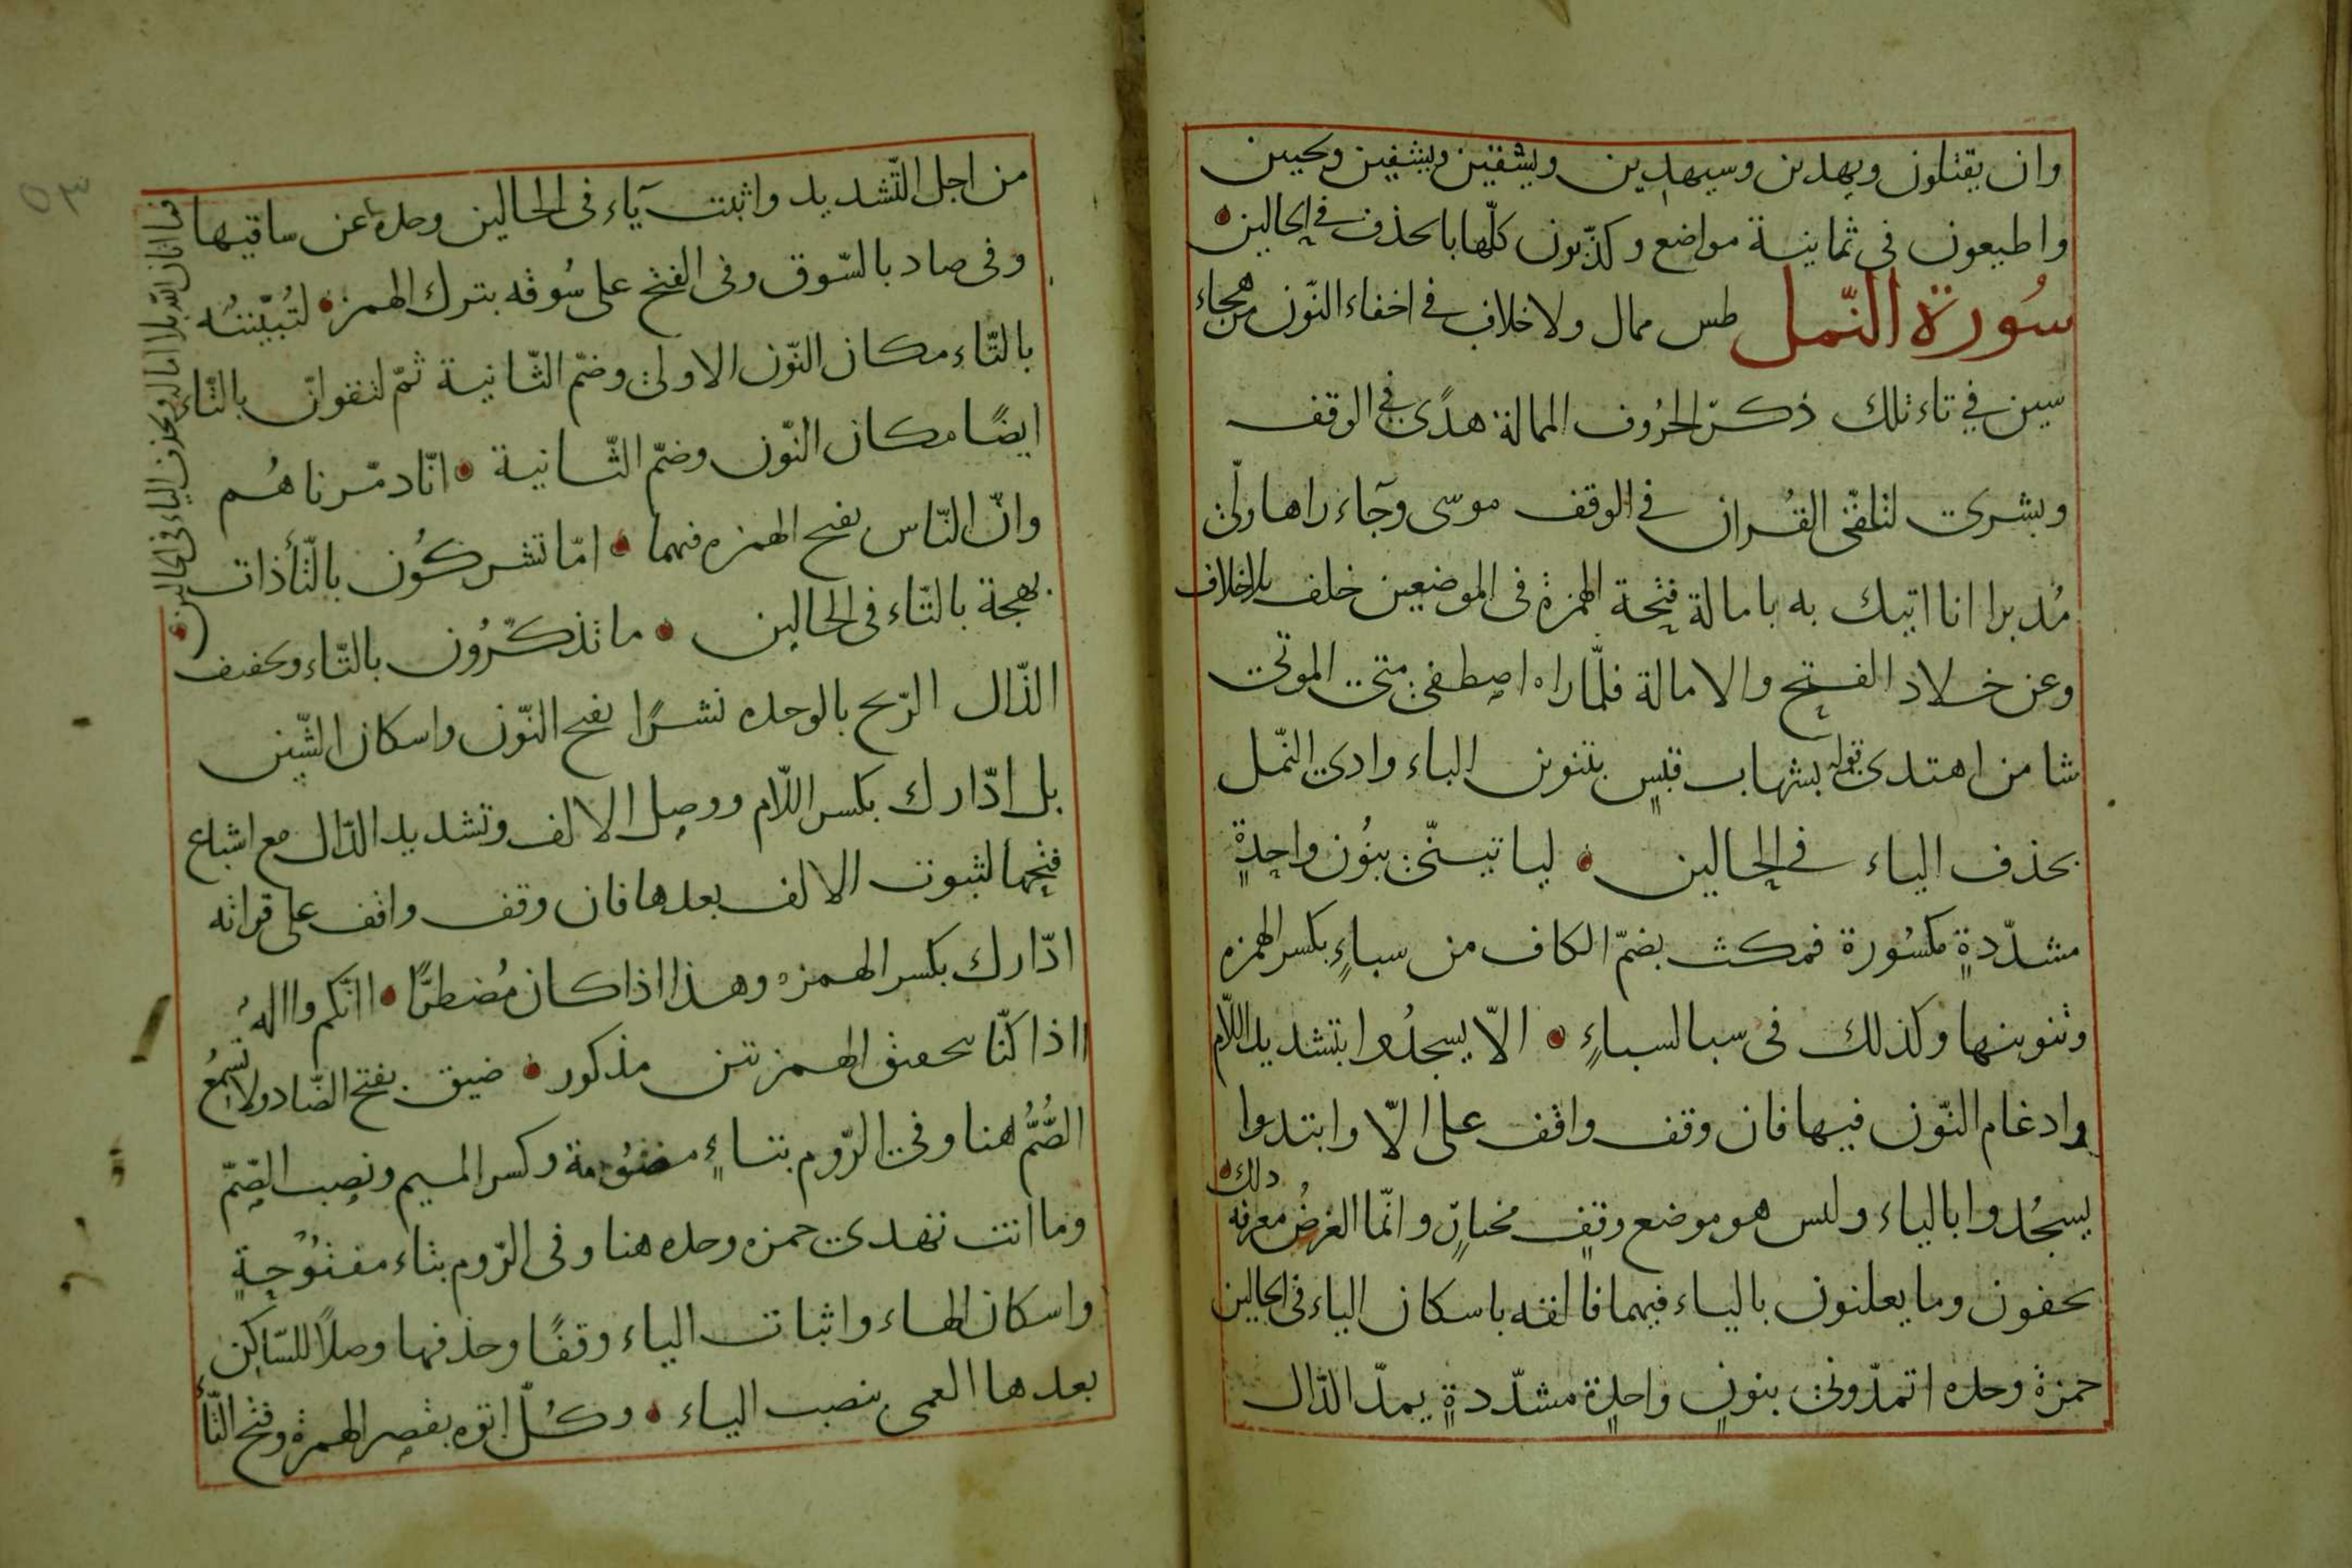 وان يقتلون ويهدين وسيهدين ويسقين ويشفين ويحيين
واطيعون فى ثمانية مواضع وكذّبون كلّها بالحذف فى الحالين
سُورة النّمل طس ممال ولا خلاف فى اخفاء النّون من هجاء
سين فى تاء تلك ذكر الحرُوف الممالة هدًى فى الوقف
وبشرى لتلقّى القُران فى الوقف موسى وجآء راها ولّى
مُدبرا انا اتيك به بامالة فتحة الهمزة فى الموضعين خلف بلا خلاف
وعن خلاد الفتح والامالة فلمّا راه اصطفى متى الموتى
شا من اهتدى قوله بشهاب قبسٍ بتنوين الباء وادى النّمل
بحذف الياء فى الحالين لياتينّى بنُون واحدةٍ
مشدّدةٍ مكسُورة فمكث بضمّ الكاف من سباءٍ بكسر الهمزه
وتنوينها وكذلك فى سبا لسباءٍ الّا يسجدُوا بتشديد اللّام
وادغام النّون فيها فان وقف واقف على الّا وابتدوا
يسجُدوا بالياء وليس هو موضع وقفٍ مختارٍ وانّما الغرضُ معرفة ذلك
يخفون وما يعلنون بالياء فيهما فالقه باسكان الياء فى الحالين
حمزة وحده اتمدّونى بنونٍ واحدةٍ مشدّدةٍ يمدّ الدّال
من اجل التّشديد واثبت يآء فى الحالين وحده عن ساقيها
وفى صاد بالسّوق وفى الفتح على سُوقه بترك الهمز لتُبيّتنّه
بالتّاء مكان النّون الاولى وضمّ الثّانية ثمّ لتقولنّ بالتّاء
ايضًا مكان النّون وضمّ الثّانية انّا دمّرناهُم
وانّ النّاس بفتح الهمزه فيهما امّا تشركُون بالتّأ ذات
بهجة بالتّاء فى الحالين ما تذكّرُون بالتّاء وتخفيف
الذّال الرّيح بالوحده نشرًا بفتح النّون واسكان الشّين
بل ادّارك بكسر اللّام ووصل الالف وتشديد الدّال مع اشباع
فتحها لثبوت الالف بعدها فان وقف واقف على قراته
ادّارك بكسر الهمزه وهذا اذا كان مُضطرًّا اانّكم واالهُ
ااذا كنّا بتحقيق الهمزتين مذكور ضيق بفتح الضّاد ولا تسمعُ
الصُّمُّ هنا وفى الرّوم بتاءٍ مضمُومة وكسر الميم ونصب الصّمّ
وما انت تهدى حمزه وحده هنا وفى الرّوم بتاء مفتُوحةٍ
واسكان الهاء واثبات الياء وقفًا وحذفها وصلًا للسّاكن
بعدها العمى بنصب الياء وكُلّ اتوه بقصر الهمزة وفتح التّأ
فما اتان اللّه بلا امالة وبحذف الياء فى الحالين
٥٣